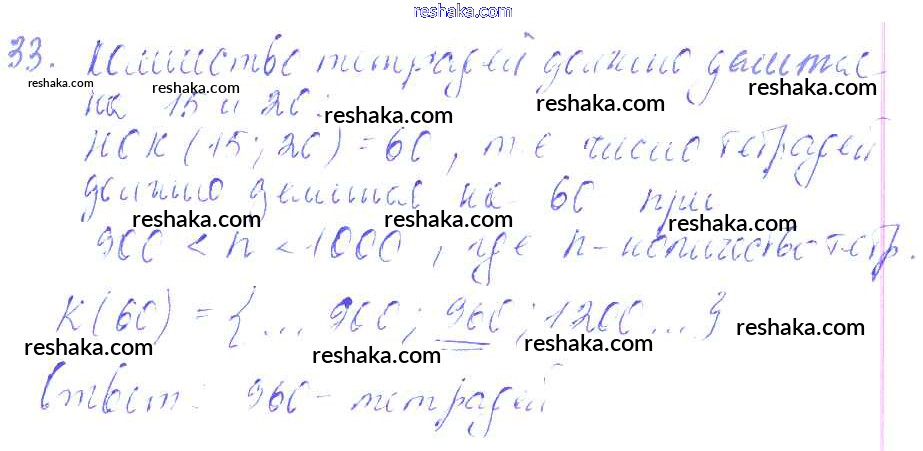 reshaka.com
33. Количество тетрадей должно делится
на 15 и 20:
НОК (15; 20) = 60, т.е число тетрадей
должно делится на 60 при
900 < n < 1000, где n - количество тетр.
К(60) = {... 900; 960; 1200 ... }
Ответ: 960 - тетрадей
reshaka.com
reshaka.com
reshaka.com
reshaka.com
reshaka.com
reshaka.com
reshaka.com
reshaka.com
reshaka.com
reshaka.com
reshaka.com
reshaka.com